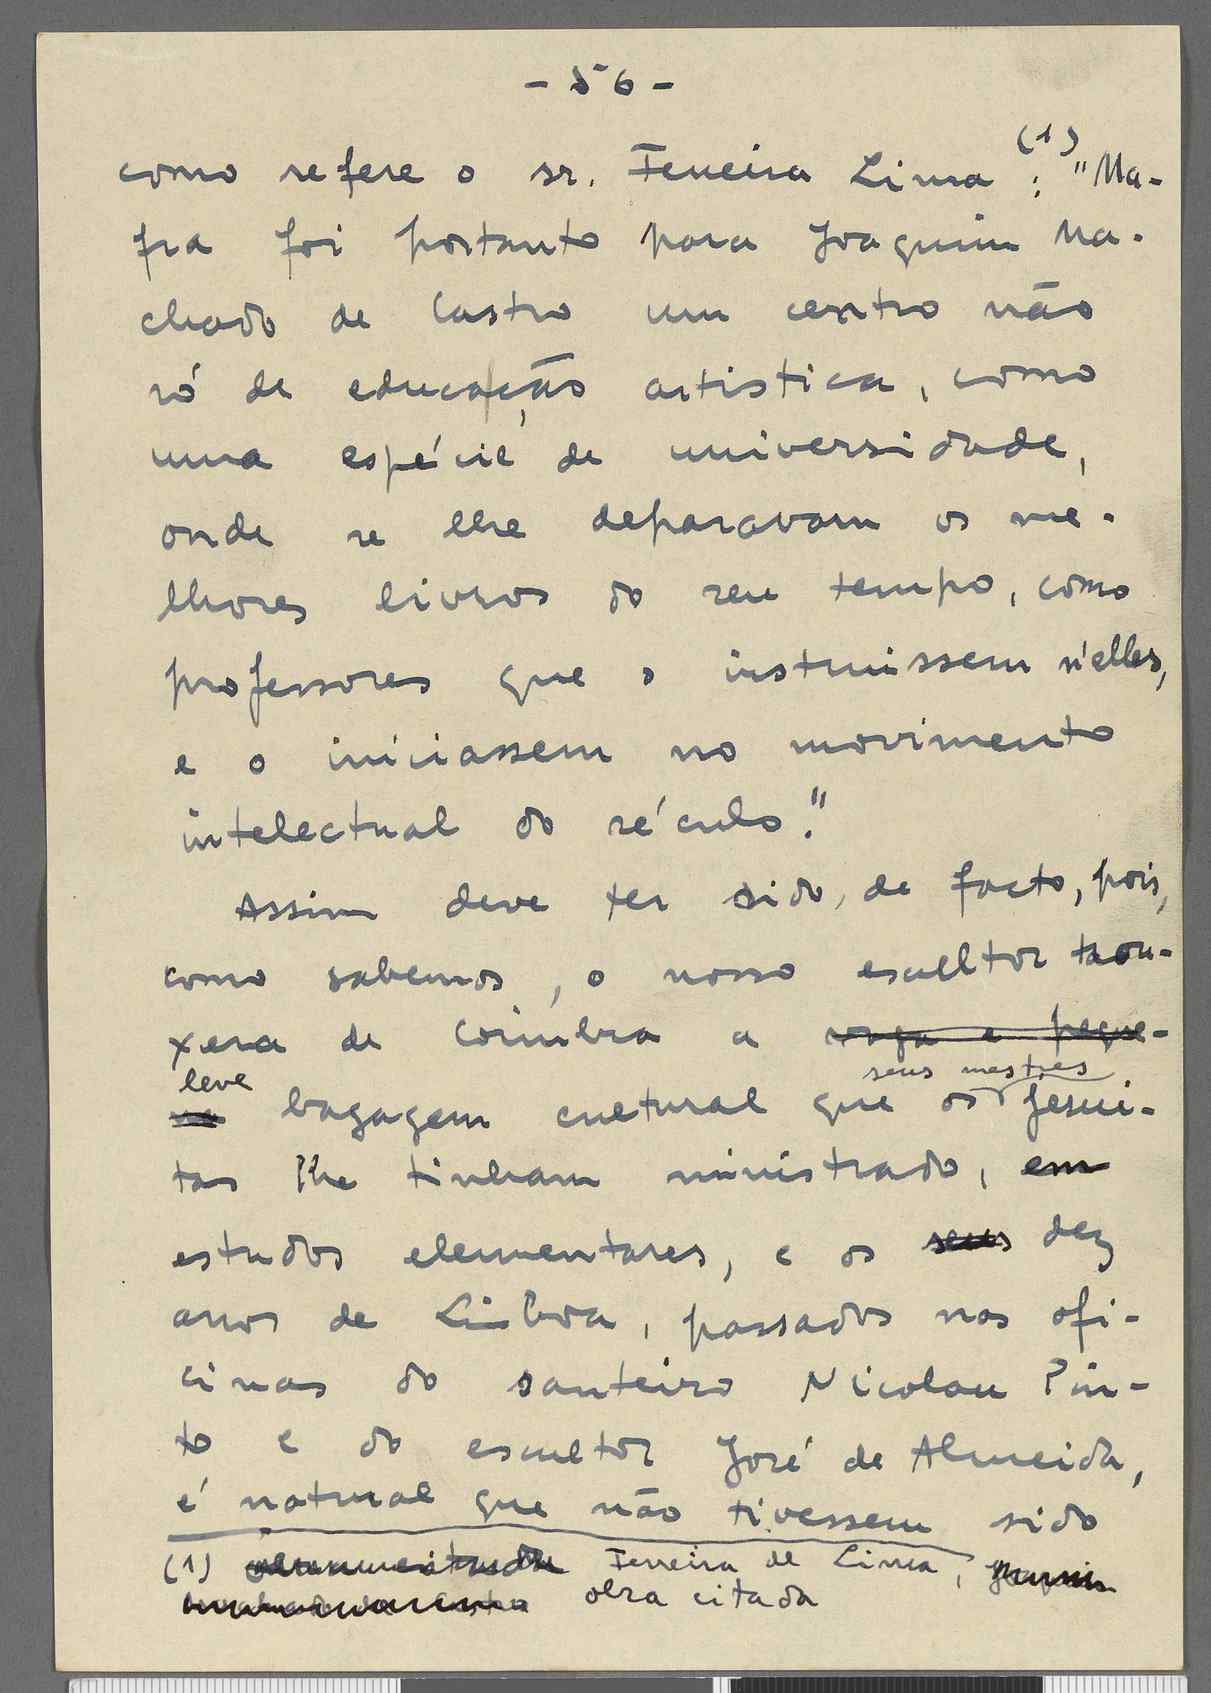 - 56 -
como refere o sr. Ferreira Lima (1) : "Ma-
fra foi portanto para Joaquim Ma-
chado de Castro um centro não
só de educação artistica, como
uma espécie de universidade,
onde se lhe deparavam os me-
lhores livros do seu tempo, como
professores que o instruissem n'elles,
e o iniciassem no movimento
intelectual do século."
Assim deve ter sido, de facto, pois,
como sabemos, o nosso escultor trou-
xera de Coimbra a vaga e peque-
leve seus mestres
na bagagem cultural que os Jesui-
tas lhe tinham ministrado, em
estudos elementares, e os seus dez
anos de Lisboa, passados nas ofi-
cinas do santeiro Nicolau Pin-
to e do escultor José de Almeida,
é natural que não tivessem sido
(1) Ferreira de Lima,
obra citada